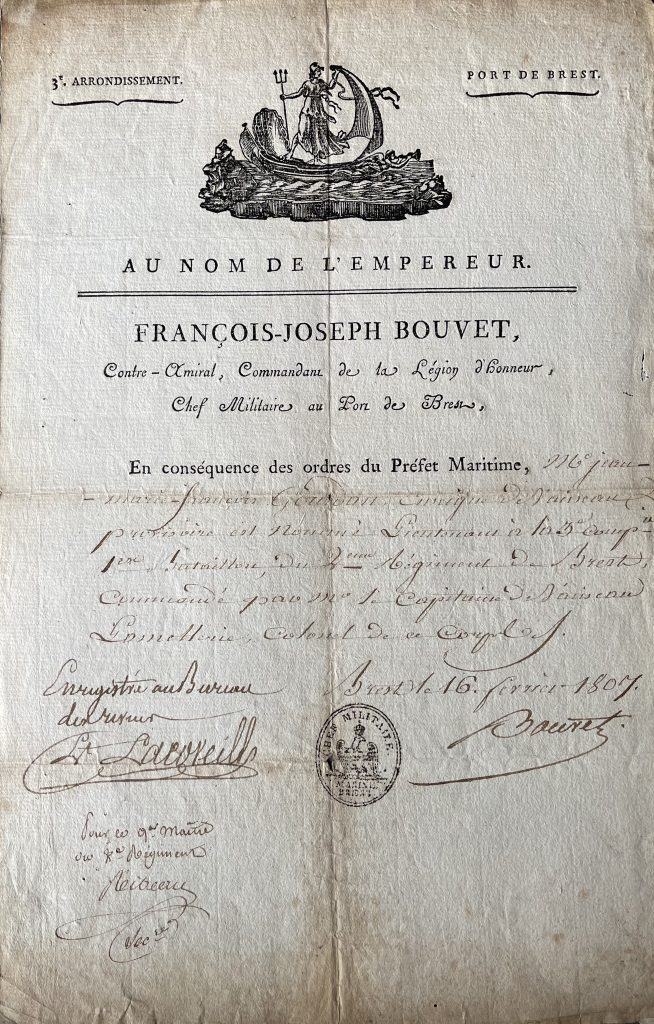 3e. ARRONDISSEMENT.
PORT DE BREST.
AU NOM DE L'EMPEREUR.
FRANÇOIS-JOSEPH BOUVET,
Contre-Amiral, Commandant de la Légion d'honneur,
Chef Militaire au Port de Brest,
En conséquence des ordres du Préfet Maritime, Mr jean-
marie-françois Enseigne de Vaisseau
provisoire est nommé Lieutenant à la 3e comp
1ere Bataillon, du Régiment de Brest,
Commandé par Mr le Capitaine de Vaisseau
Lamellerie, Colonel de ce Corps
Brest le 16 fevrier 1807.
Enregistré au Bureau
des revues
Bouvet.
CHEF MILITAIRE.
MARINE
BREST
Pour le qer Maitre
du Régiment